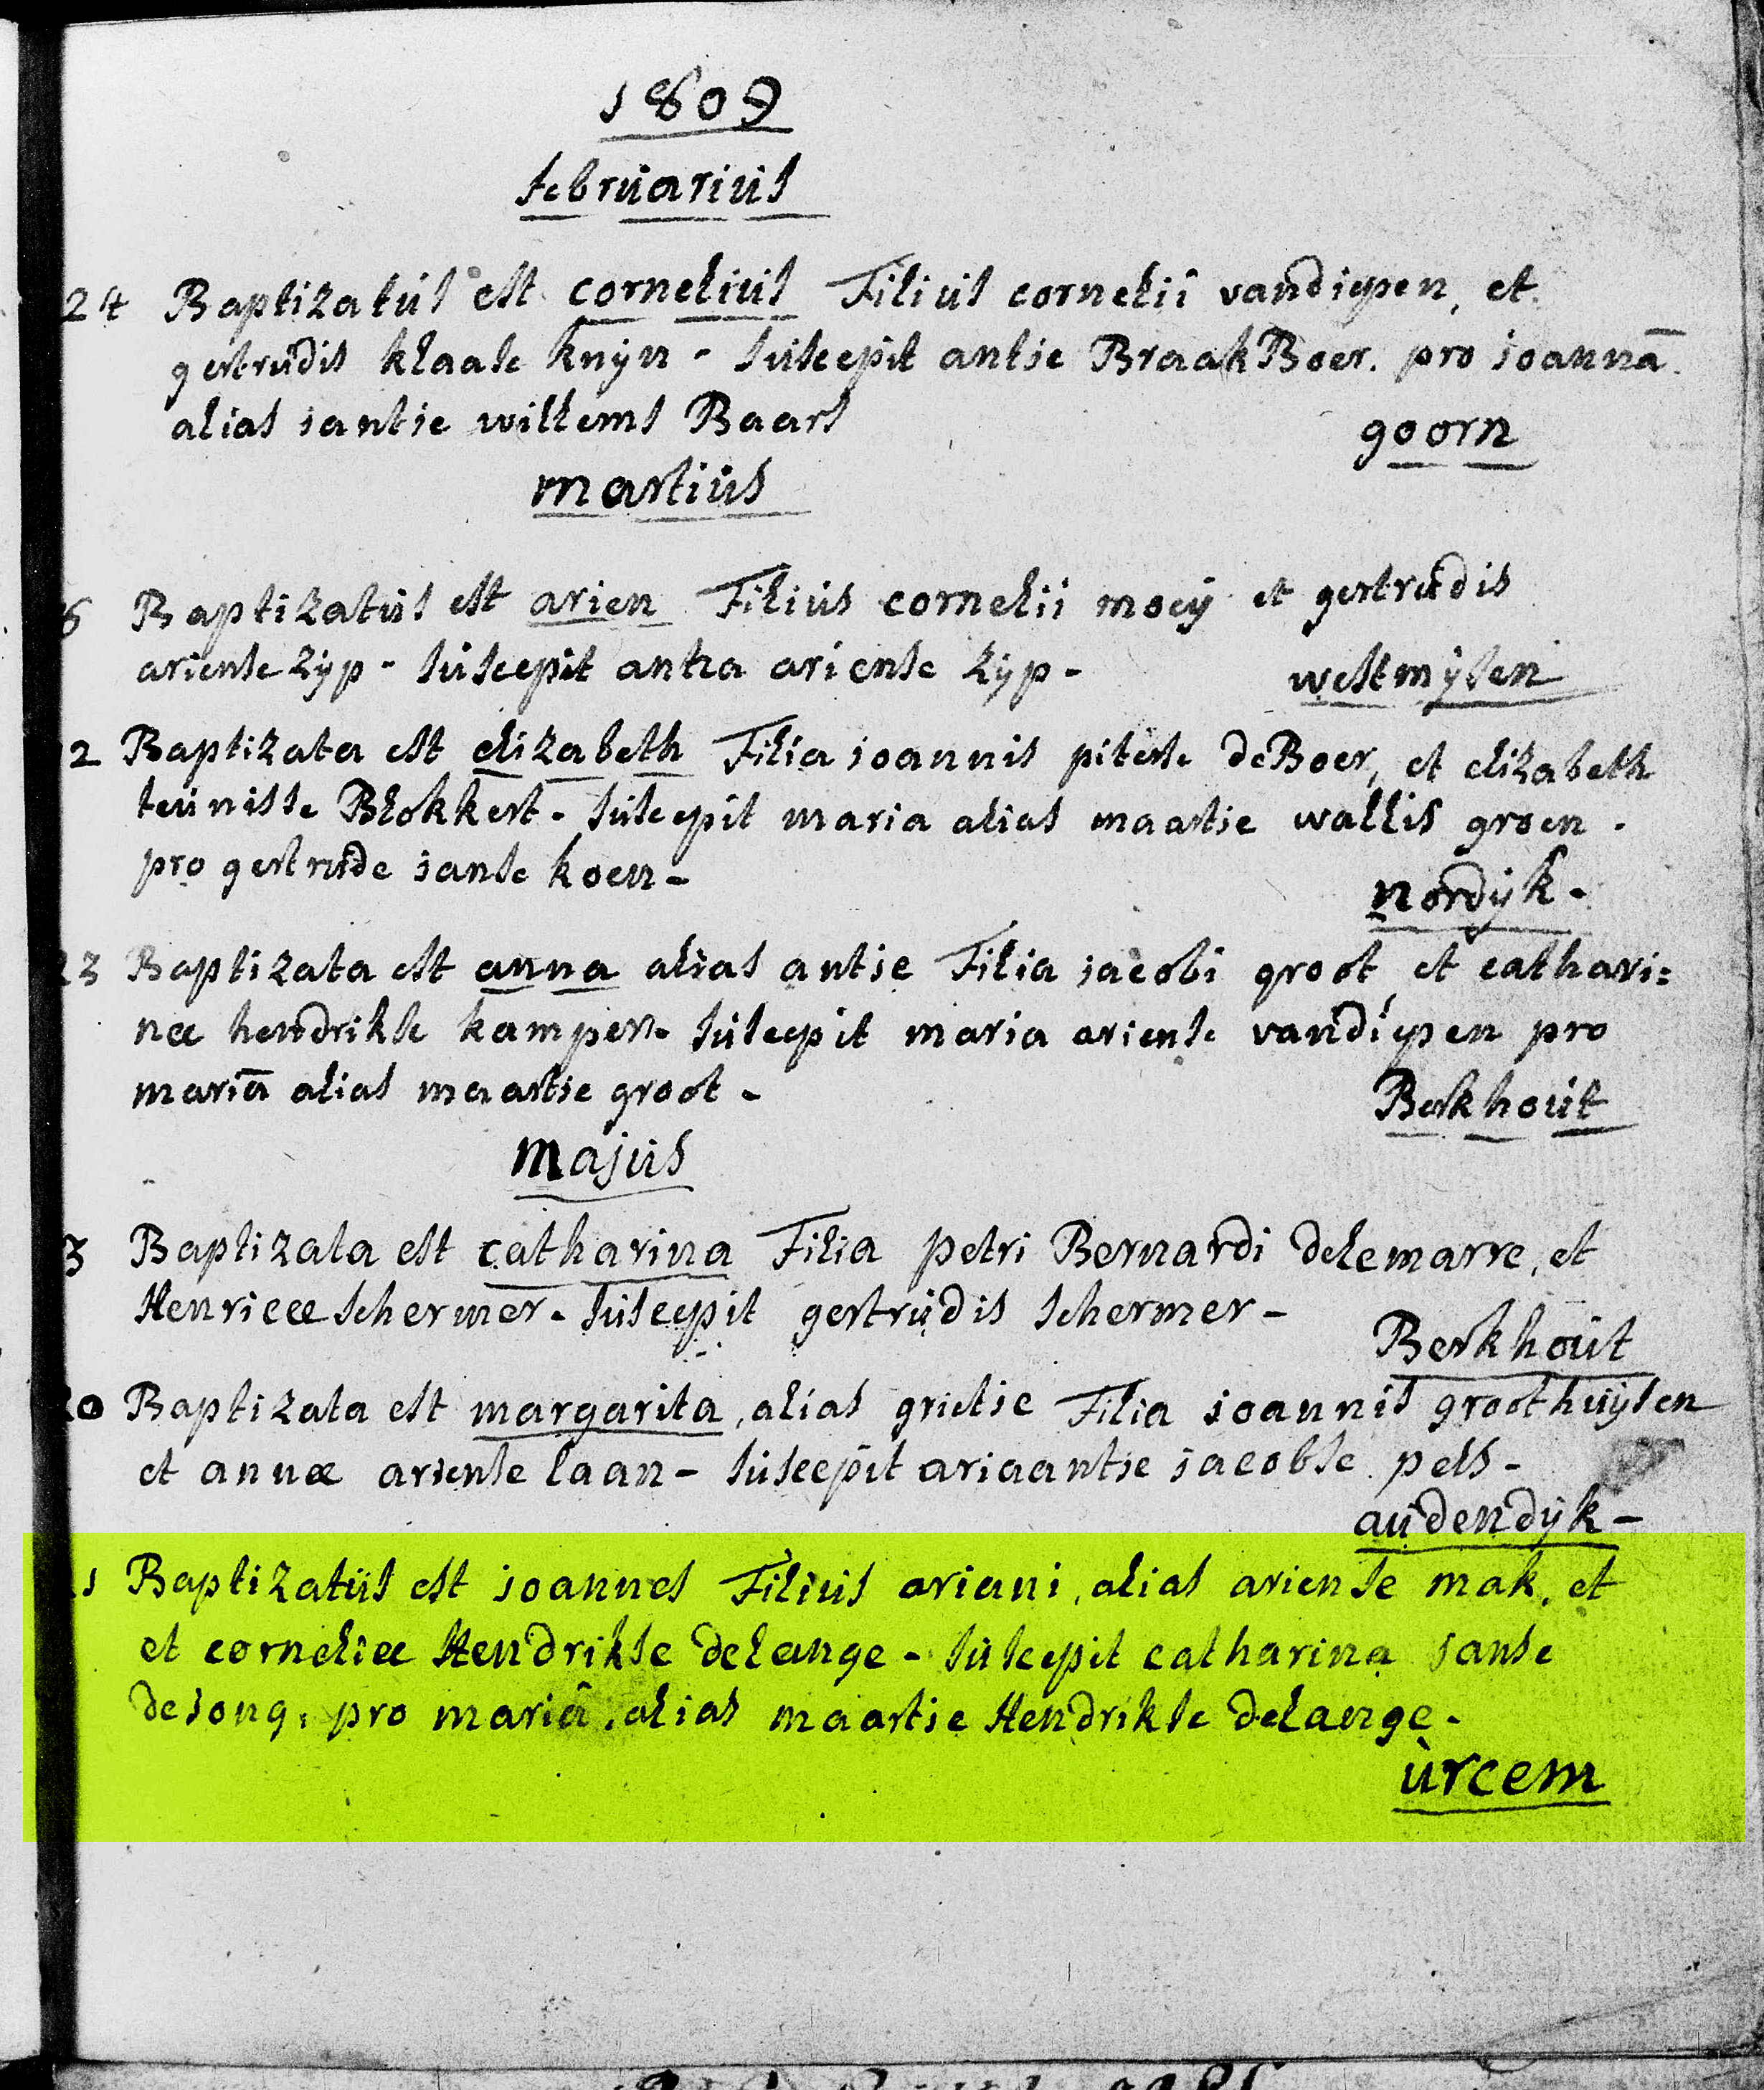 1809
februarius
24 Baptizatus est cornelius Filius cornelii vandiepen, et
gertrudis klaase knijn - suscepit antie Braak Boer. pro ioannā
alias iantie willems Baars
goorn
martius
6 Baptizatus est arien Filius cornelii moeij et gertrudis
ariense zijp - suscepit antia ariense zijp -
westmijsen
2 Baptizata est elizabeth Filia ioannis piterse deBoer, et elizabeth
teunisse Blokkert - suscepit maria alias maartie wallis groen .
pro gertrude ianse koen -
nordijk -
23 Baptizata est anna alias antie Filia iacobi groot et cathari=
næ hendrikse kamper - suscepit maria ariense vandiepen pro
mariā alias maartie groot -
Berkhout
majus
3 Baptizata est catharina Filia petri Bernardi delemarre, et
Henricæ schermer - suscepit gertrudis schermer -
Berkhout
20 Baptizata est margarita, alias grietie Filia ioannis groothuijsen
et annæ ariense laan - suscepit ariaantie iacobse pels -
audendijk -
21 Baptizatus est ioannes Filius ariani, alias ariense mak, et
et corneliæ Hendrikse delange - suscepit catharina ianse
deiong, pro mariâ, alias maartie Hendrikse delange -
ùrcem